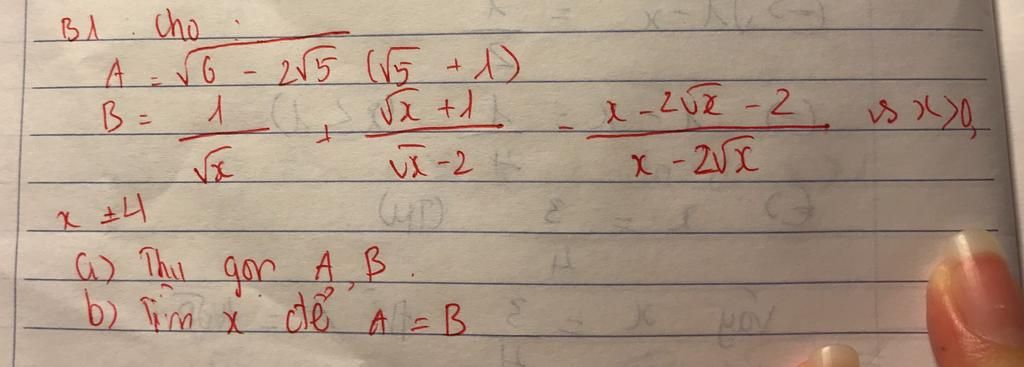 B1. Cho:
A = √(6 - 2√5) (√5 + 1)
B = 1/√x + (√x + 1)/(√x - 2) - (x - 2√x - 2)/(x - 2√x) vs x > 0,
x ≠ 4
a) Thu gọn A, B.
b) Tìm x để A = B